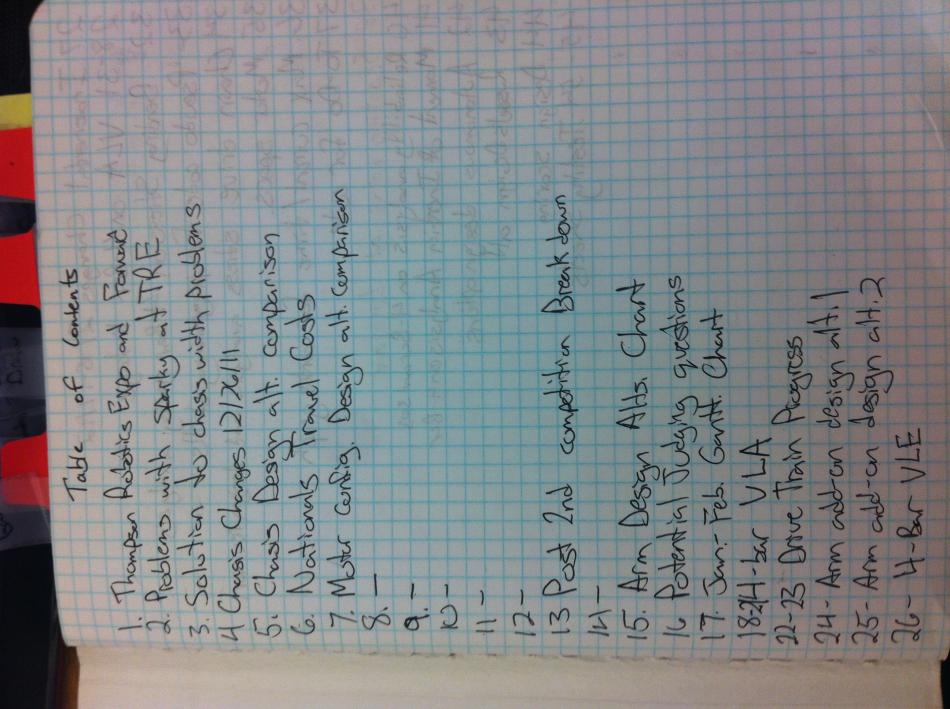 Table of Contents
1. Thompson Robotics Expo and Format
2. Problems with Sparky at TRE
3. Solution to chassis width problems
4 Chassis Changes 12/26/11
5. Chasis Design alt. comparison
6. Nationals Travel Costs
7. Motor Config. Design alt. Comparison
8. —
9. —
10 -
11 -
12 -
13 Post 2nd competition Breakdown
14 -
15. Arm Design Alts. Chart
16 Potential Judging questions
17. Jan.- Feb. Gantt. Chart
4-bar VLA
22-23 Drive Train Progress
24- Arm add-on design alt. 1
25- Arm add-on design alt. 2
26- 4-Bar VLE